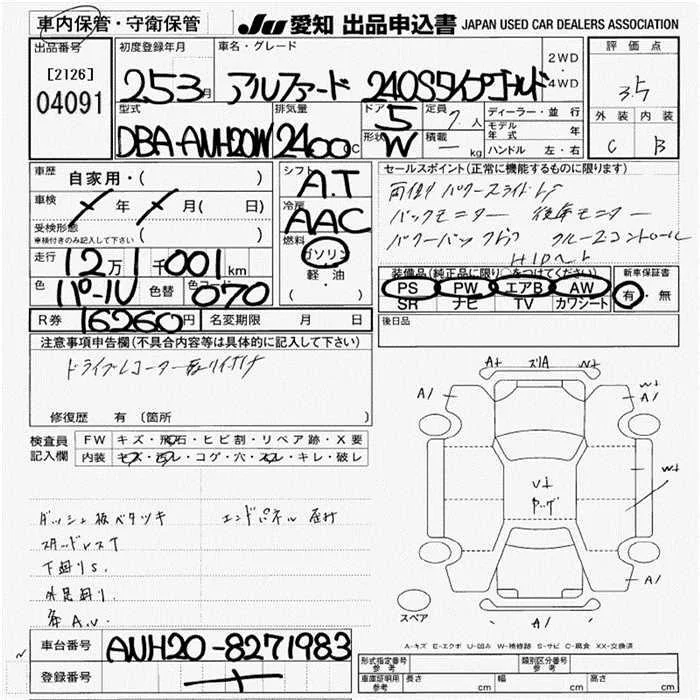 車内保管・守衛保管
JU 愛知 出品申込書 JAPAN USED CAR DEALERS ASSOCIATION
出品番号
[2126]
04091
初度登録年月
253月
車名・グレード
アルファード 240Sタイプゴールド
2WD
・
4WD
評価点
3.5
外装 内装
C B
型式
DBA-ANH20W
排気量
2400cc
ドア 5
形状 W
定員 7人
積載 ― kg
ディーラー・並行
モデル年式 年
ハンドル 左・右
車歴 自家用・( )
車検 年 月( 日)
受検形態
車検付きのみ記入して下さい ( )
走行 12万1千001km
色 パールV 色替 色コード 070
R券 16260円 名変期限 月 日
シフト
A.T
冷房
AAC
燃料
ガソリン
軽・油
( )
セールスポイント(正常に機能するものに限ります)
両側パワースライドドア
バックモニター 後席モニター
パワーバックドア クルーズコントロール
HIDヘッド
装備品(純正品に限り○をつけてください)
PS PW エアB AW
SR ナビ TV カワシート
新車保証書
有・無
後日品
注意事項申告欄(不具合内容等は具体的に記入して下さい)
ドライブレコーター取り付け
修復歴 有 (箇所
検査員
記入欄
FW キズ・飛石・ヒビ割・リペア跡・X要
内装 キズ・汚レ・コゲ・穴・スレ・キレ・破レ
ダッシュ板ベタツキ エンドパネル
スタッドレスT
下廻りS.
外足廻り.
車台番号 ANH20-8271983
登録番号
A+ ズリA W+
A/ W+
A/
W+
U+
ヤッケ
A/
A/
スペア
A-キズ E-エクボ U-凹み W-補修跡 S-サビ C-腐食 XX-交換済
形式指定番号
参考
類別区分番号
参考
車庫証明用
参考
長さ cm 幅 cm 高さ cm